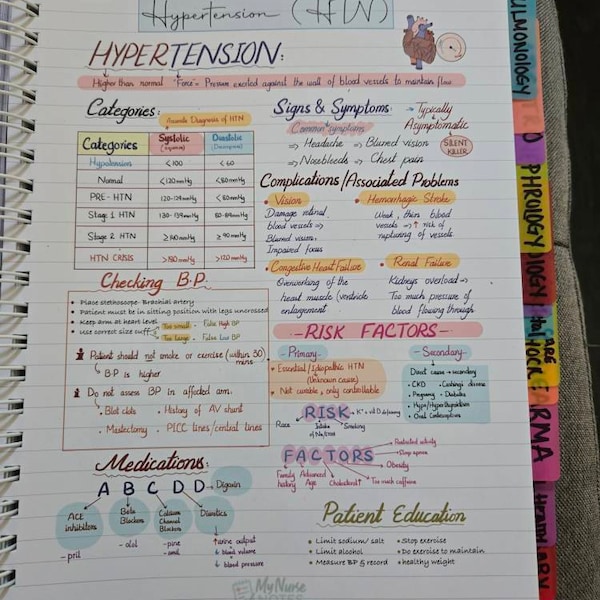 Hypertension (HTN)
HYPERTENSION:
Higher than normal "Force" - Pressure exerted against the wall of blood vessels to maintain flow
Categories:
Accurate Diagnosis of HTN
Categories Systolic Diastolic
Hypotension <100 <60
Normal <120mmHg <80mmHg
PRE-HTN 120-129mmHg <80mmHg
Stage 1 HTN 130-139mmHg 80-89mmHg
Stage 2 HTN ≥140mmHg ≥90mmHg
HTN CRISIS >180mmHg >120mmHg
Signs & Symptoms → Typically
Asymptomatic
SILENT
KILLER
Common symptoms
⇒ Headache ⇒ Blurred vision
⇒ Nosebleeds ⇒ Chest pain
Complications/Associated Problems
• Vision
Damage retinal
blood vessels ⇒
Blurred vision,
Impaired focus
• Hemorrhagic Stroke
Weak, thin blood
vessels ⇒ ↑ risk of
rupturing of vessels
• Congestive Heart Failure
Overworking of the
heart muscle (ventricle
enlargement
• Renal Failure
Kidneys overload ⇒
Too much pressure of
blood flowing through
Checking B.P
• Place stethoscope- Brachial artery
• Patient must be in sitting position with legs uncrossed
• Keep arm at heart level
• Use correct size cuff
Too small - False High BP
Too large - False Low BP
Patient should not smoke or exercise (within 30)
mins
BP is higher
Do not assess BP in affected arm.
• Blot clots • History of AV shunt
• Mastectomy • PICC lines/central lines
-RISK FACTORS-
-Primary-
• Essential/Idiopathic HTN
(Unknown cause)
• Not curable, only controllable
-Secondary-
Direct cause → secondary
• CKD • Cushings disease
• Pregnancy • Diabetes
• Hypo/Hyperthyroidism
• Oral Contraceptives
RISK
Race
Intake
of Na/ETOH
Smoking
K+ & vit D deficiency
FACTORS
Family
history
Advanced
Age
Cholesterol↑
Too much caffeine
Obesity
Sleep apnea
Restricted activity
Medications:
A B C D D - Digoxin
ACE
inhibitors
-pril
Beta
Blockers
-olol
Calcium
Channel
Blockers
-pine
Diuretics
↑urine output
↓ blood volume
↓ blood pressure
Patient Education
• Limit sodium/salt • Stop exercise
• Limit alcohol • Do exercise to maintain
• Measure BP & record • healthy weight
My Nurse
NOTES
PULMONOLOGY
PHROLOGY
CARE
SHOCK